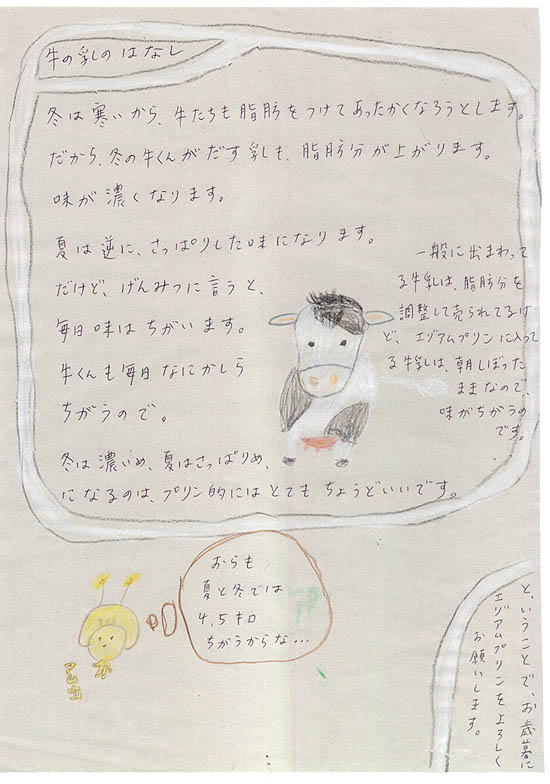 牛の乳のはなし
冬は寒いから、牛たちも脂肪をつけてあったかくなろうとします。
だから、冬の牛くんがだす乳も、脂肪分が上がります。
味が濃くなります。
夏は逆に、さっぱりした味になります。
だけど、げんみつに言うと、
毎日味はちがいます。
牛くんも毎日なにかしら
ちがうので。
一般に出まわって
る牛乳は、脂肪分を
調整して売られてるけ
ど、エゾアムプリンに入って
る牛乳は、朝しぼった
ままなので、
味がちがうの
です。
冬は濃いめ、夏はさっぱりめ、
になるのは、プリン的にはとてもちょうどいいです。
おらも
夏と冬では
4,5キロ
ちがうからな…
と、いうことで、お歳暮に
エゾアムプリンをよろしく
お願いします。